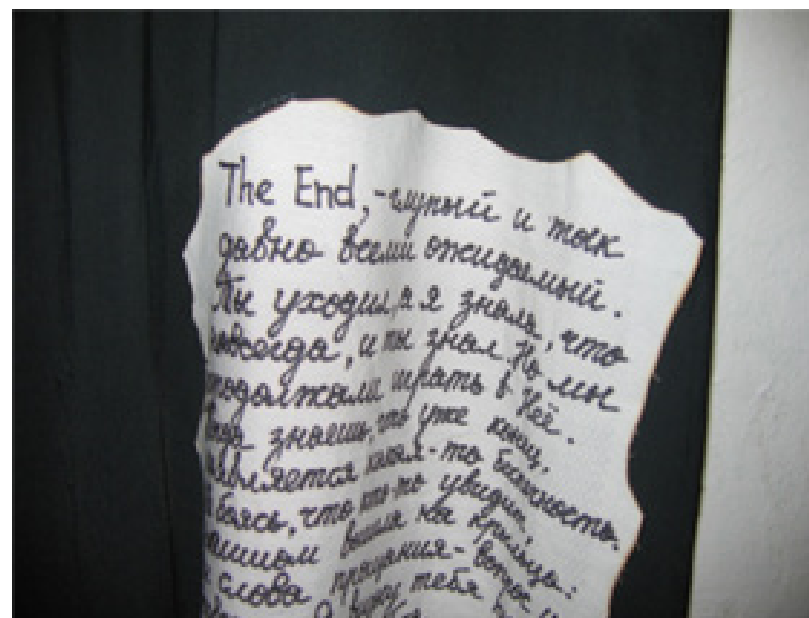 The End, - глупый и так
давно всеми ожидаемый.
Ты уходил, а я знала, что
навсегда, и ты знал. Но мы
продолжали играть в неё.
Когда знаешь, что уже конец,
появляется какая-то бесконечность.
боясь, что кто-то увидит,
вышла на крыльцо:
слова прощания-
вижу тебя